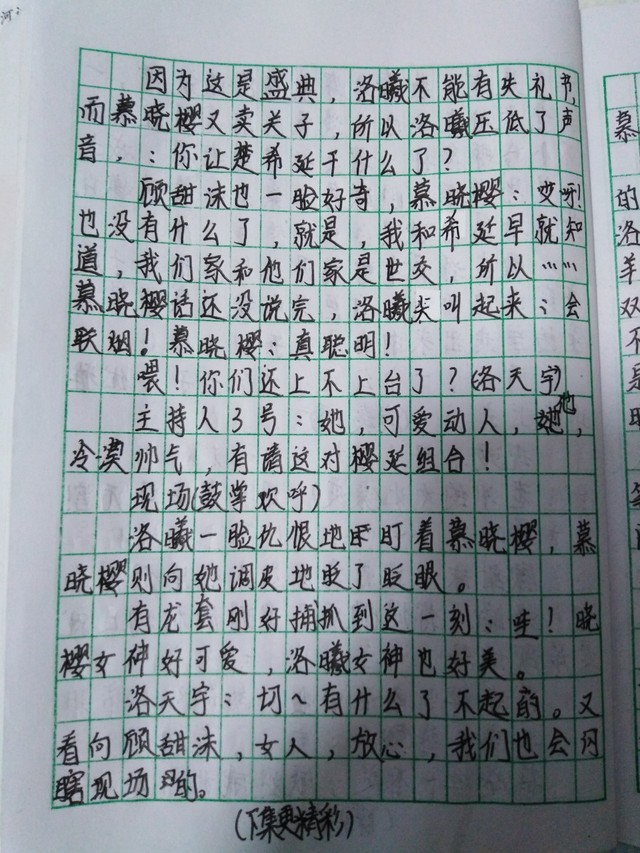 河：
因为这是盛典，洛曦不能有失礼书，
而慕晓樱又卖关子，所以洛曦压低了声
音，：你让楚希延干什么了？
顾甜沫也一脸好奇，慕晓樱：哎呀！
也没有什么了，就是，我和希延早就知
道，我们家和他们家是世交，所以……
慕晓樱话还没说完，洛曦尖叫起来：会
联姻！慕晓樱：真聪明！
喂！你们还上不上台了？（洛天宇）
主持人3号：她，可爱动人，他，
冷漠帅气，有请这对樱延组合！
现场（鼓掌欢呼）
洛曦一脸仇恨地盯着慕晓樱，慕
晓樱则向她调皮地眨了眨眼。
有龙套刚好捕抓到这一刻：哇！晓
樱女神好可爱，洛曦女神也好美。
洛天宇：切~有什么了不起的。又
看向顾甜沫，女人，放心，我们也会闪
瞎现场的。
（下集更精彩）
慕
的
洛
羊
双
不
是